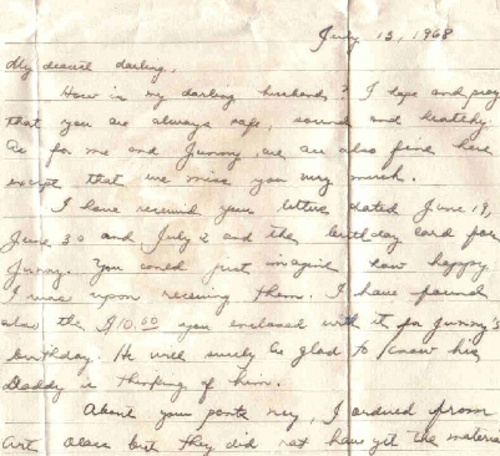 July 13, 1968
My dearest darling,
How is my darling husband? I hope and pray
that you are always safe, sound and healthy.
As for me and Jimmy, we are also fine here
except that we miss you very much.
I have received your letters dated June 19,
June 30 and July 2 and the birthday card for
Jimmy. You could just imagine how happy
I was upon receiving them. I have found
also the $10.00 you enclosed with it for Jimmy's
birthday. He will surely be glad to know his
Daddy is thinking of him.
About your pants, I ordered from
but they did not have yet the material